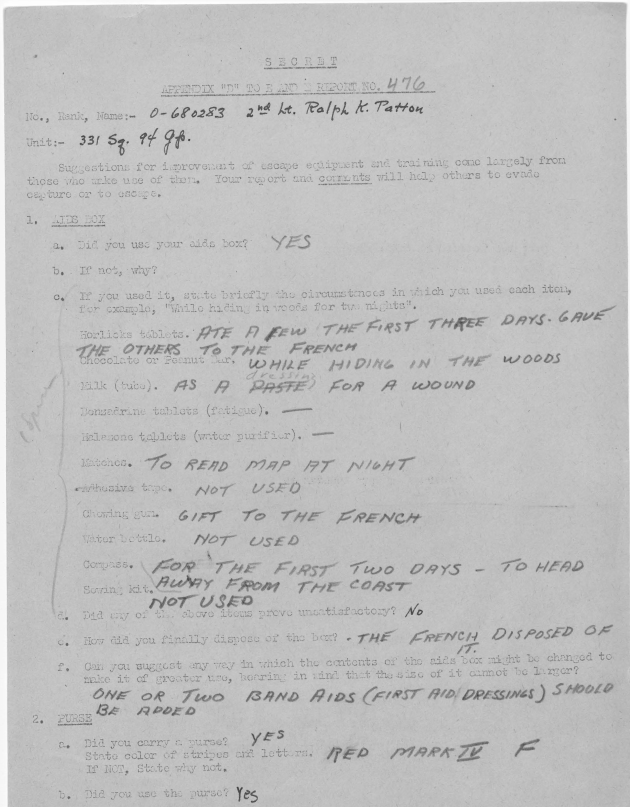 SECRET
APPENDIX "D" TO E AND E REPORT NO. 476
No., Rank, Name:- O-680283 2nd Lt. Ralph K. Patton
Unit:- 331 Sq. 94 Gp.
Suggestions for improvement of escape equipment and training come largely from
those who make use of them. Your report and comments will help others to evade
capture or to escape.
1. AIDS BOX
a. Did you use your aids box? YES
b. If not, why?
c. If you used it, state briefly the circumstances in which you used each item,
for example, "While hiding in woods for two nights".
Horlicks tablets. ATE A FEW THE FIRST THREE DAYS. GAVE
THE OTHERS TO THE FRENCH
Chocolate or Peanut Bar. WHILE HIDING IN THE WOODS
dressing
Milk (tube). AS A PASTE FOR A WOUND
Benzedrine tablets (fatigue). —
Halazone tablets (water purifier). —
Matches. TO READ MAP AT NIGHT
Adhesive tape. NOT USED
Chewing gum. GIFT TO THE FRENCH
Water bottle. NOT USED
Compass. FOR THE FIRST TWO DAYS – TO HEAD
AWAY FROM THE COAST
Sewing kit. NOT USED
d. Did any of the above items prove unsatisfactory? No
e. How did you finally dispose of the box? - THE FRENCH DISPOSED OF
IT.
f. Can you suggest any way in which the contents of the aids box might be changed to
make it of greater use, bearing in mind that the size of it cannot be larger?
ONE OR TWO BAND AIDS (FIRST AID DRESSINGS) SHOULD
BE ADDED
2. PURSE
a. Did you carry a purse? YES
State color of stripes and letters. RED MARK IV F
If NOT, State why not.
b. Did you use the purse? Yes